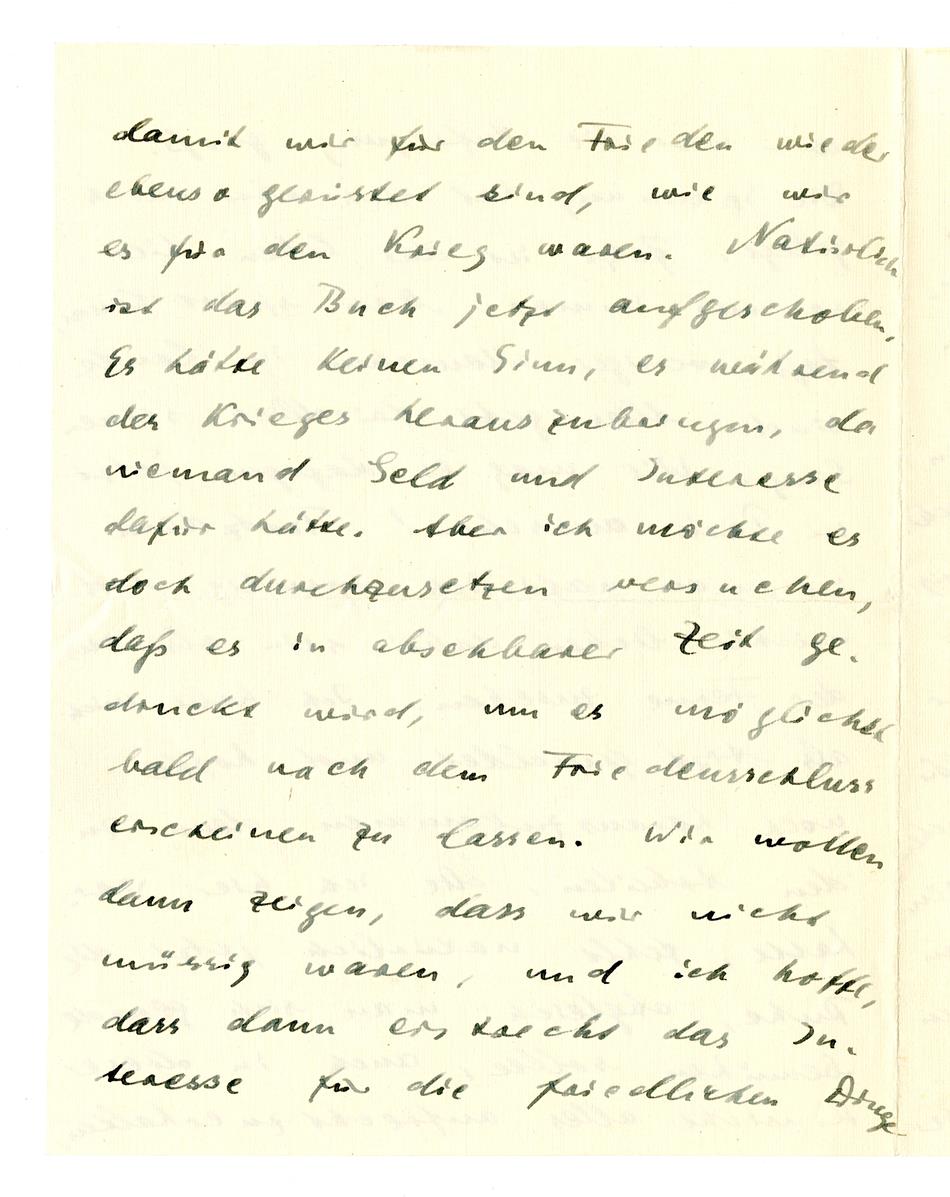 damit wir für den Frieden wieder
ebenso gerüstet sind, wie wir
es für den Krieg waren. Natürlich
ist das Buch jetzt aufgeschoben,
Es hätte keinen Sinn, es während
des Krieges herauszubringen, da
niemand Geld und Interesse
dafür hätte. Aber ich möchte es
doch durchzusetzen versuchen,
daß es in absehbarer Zeit ge-
druckt wird, um es möglichst
bald nach dem Friedensschluss
erscheinen zu lassen. Wir wollen
dann zeigen, dass wir nicht
müssig waren, und ich hoffe,
dass dann erst recht das In-
teresse für die friedlichen Dinge